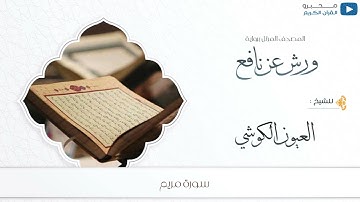 محبرو
القرآن الكريم
المصحف المرتل برواية
ورش عن نافع
للشيخ :
العيون الكوشي
سورة مريم